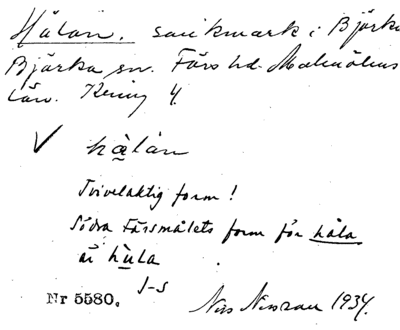 Hålan. sankmark i Björka
Björka sn. Färs hd. Malmöhus
län. 4.
✓ hålan
Tvivelaktig form!
Södra Färsmålets form för håla
är hula
J-S
Nr 5580. Nils Nilsson 1934.